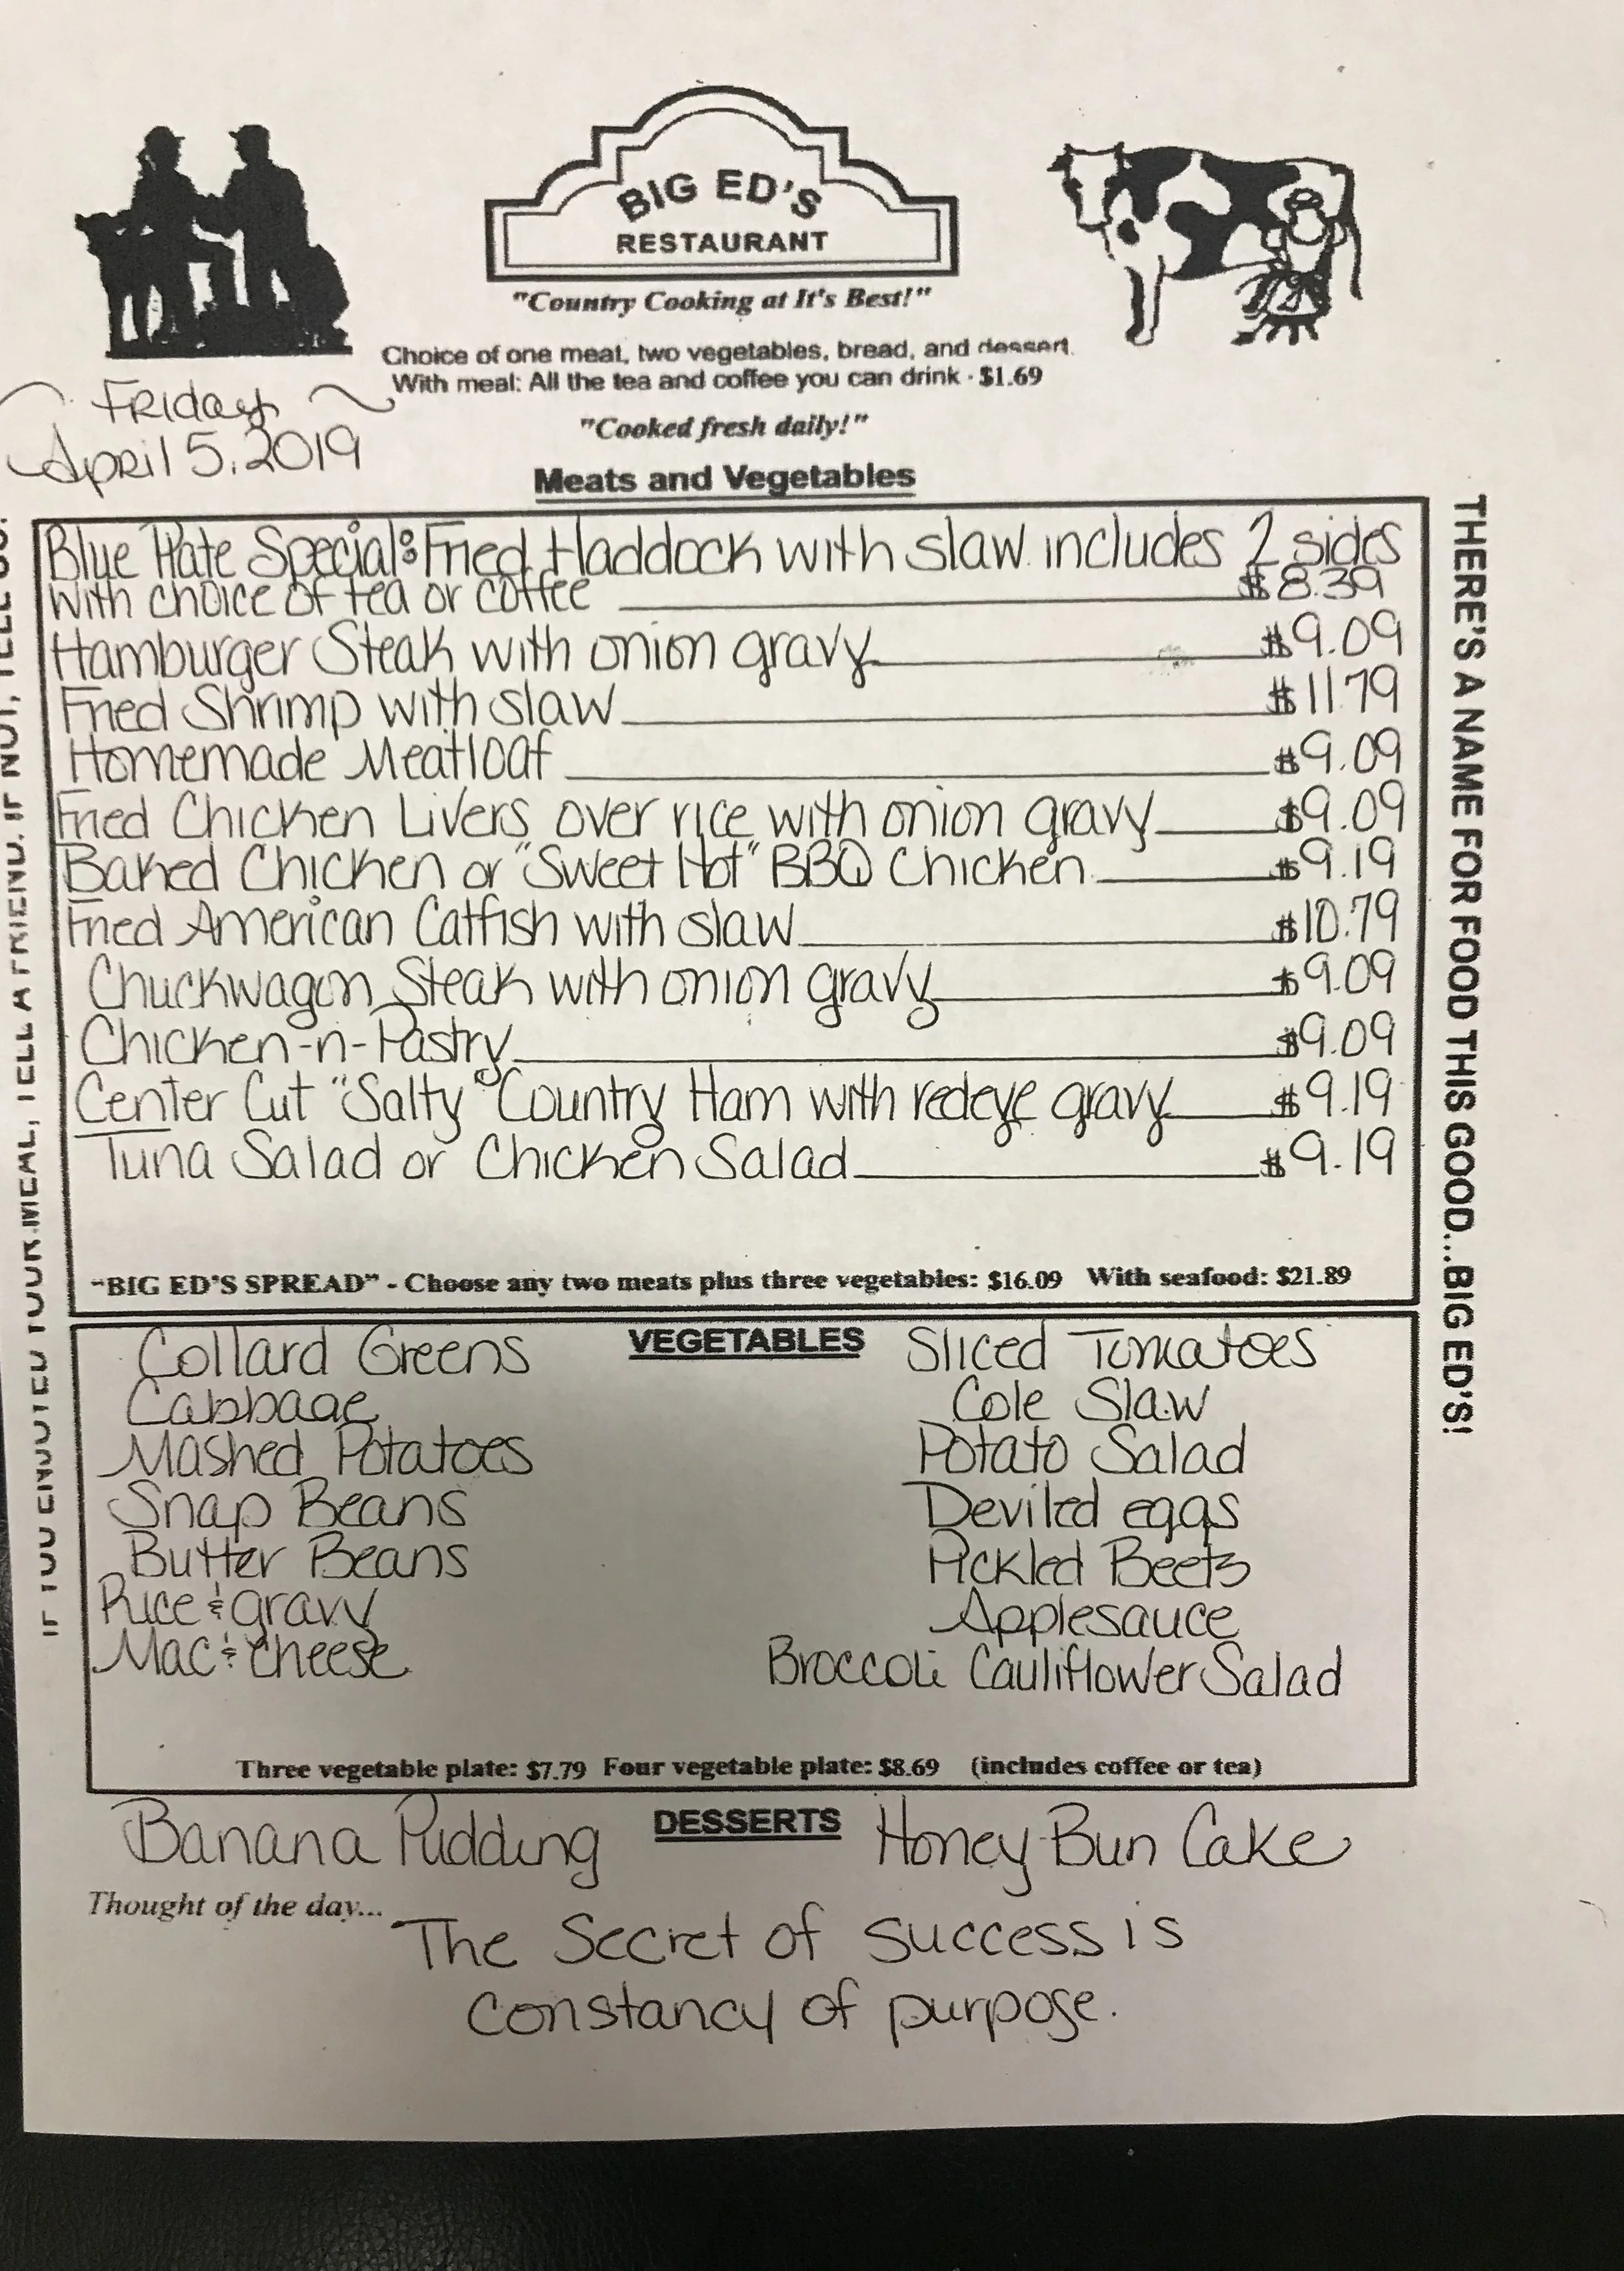 BIG ED'S
RESTAURANT
"Country Cooking at It's Best!"
Choice of one meat, two vegetables, bread, and dessert.
With meal: All the tea and coffee you can drink - $1.69
Friday
April 5, 2019
"Cooked fresh daily!"
Meats and Vegetables
Blue Plate Special: Fried Haddock with slaw includes 2 sides
with choice of tea or coffee $8.39
Hamburger Steak with onion gravy $9.09
Fried Shrimp with slaw $11.79
Homemade Meatloaf $9.09
Fried Chicken Livers over rice with onion gravy $9.09
Baked Chicken or "Sweet Hot" BBQ Chicken $9.19
Fried American Catfish with slaw $10.79
Chuckwagon Steak with onion gravy $9.09
Chicken-n-Pastry $9.09
Center Cut "Salty" Country Ham with redeye gravy $9.19
Tuna Salad or Chicken Salad $9.19
"BIG ED'S SPREAD" - Choose any two meats plus three vegetables: $16.09 With seafood: $21.89
VEGETABLES
Collard Greens
Cabbage
Mashed Potatoes
Snap Beans
Butter Beans
Rice & gravy
Mac & cheese
Sliced Tomatoes
Cole Slaw
Potato Salad
Deviled eggs
Pickled Beets
Applesauce
Broccoli Cauliflower Salad
Three vegetable plate: $7.79 Four vegetable plate: $8.69 (includes coffee or tea)
DESSERTS
Banana Pudding
Honey Bun Cake
Thought of the day...
The Secret of success is
constancy of purpose.
IF YOU ENJOYED YOUR MEAL, TELL A FRIEND. IF NOT, TELL US!
THERE'S A NAME FOR FOOD THIS GOOD...BIG ED'S!